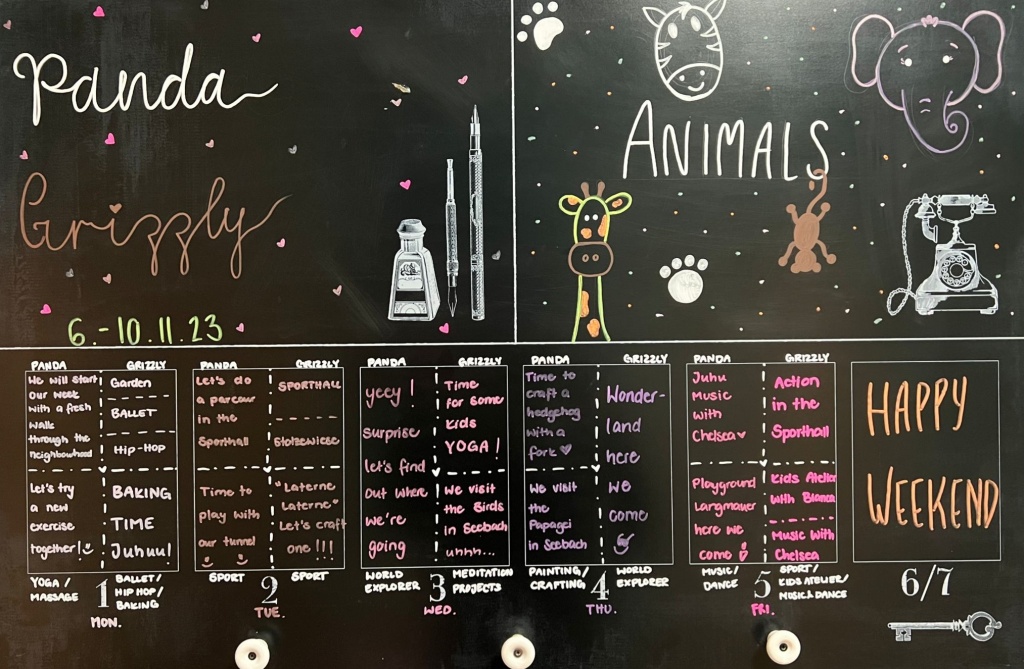 Panda
Grizzly
6.-10.11.23
ANIMALS
PANDA
GRIZZLY
We will start
our week
with a fresh
walk
through the
neighbourhood
Let's try
a new
exercise
together!
Garden
BALLET
HIP-HOP
BAKING
TIME
Juhuu!
YOGA /
MASSAGE
1
MON.
BALLET/
HIP HOP/
BAKING
PANDA
GRIZZLY
Let's do
a parcour
in the
Sporthall
Time to
play with
our tunnel
SPORTHALL
Stolzewiese
"Laterne
Laterne"
Let's craft
one !!!
SPORT
2
TUE.
SPORT
PANDA
GRIZZLY
yeey !
surprise
let's find
out where
we're
going
Time
for some
kids
YOGA !
We visit
the Birds
in Seebach
uhhh...
WORLD
EXPLORER
3
WED.
MEDITATION
PROJECTS
PANDA
GRIZZLY
Time to
craft a
hedgehog
with a
fork
We visit
the
Papagei
in Seebach
Wonder-
land
here
we
come
PAINTING/
CRAFTING
4
THU.
WORLD
EXPLORER
PANDA
GRIZZLY
Juhu
Music
with
Chelsea
Playground
Langmauer
here we
come
Action
in the
Sporthall
Kids Atelier
with Bianca
Music with
Chelsea
MUSIC/
DANCE
5
FRI.
SPORT/
KIDS ATELIER/
MUSIC & DANCE
HAPPY
WEEKEND
6/7